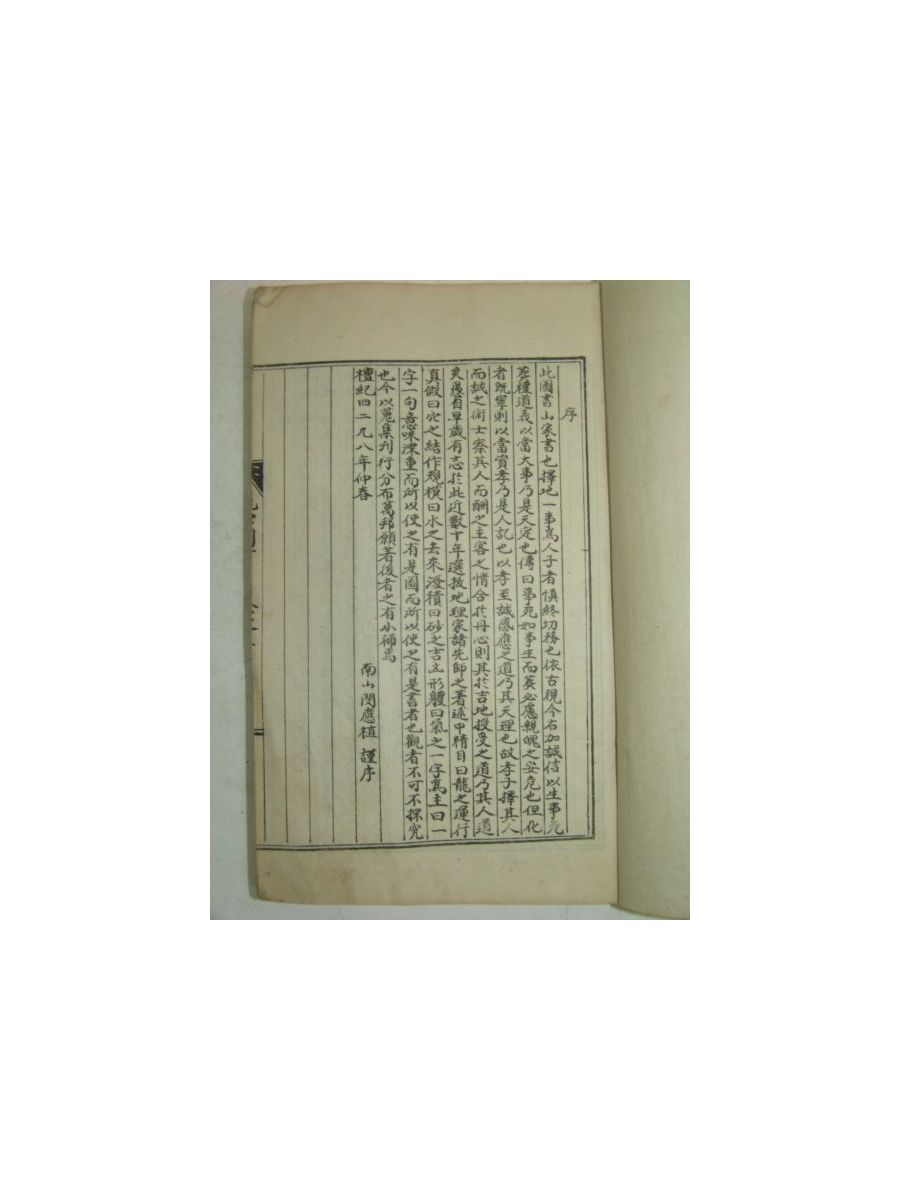 序
此圖書山家書也擇地一事爲人子者愼終切務也依古視今右加誠信以生事死
葬禮道義以當大事乃是天定也傳曰事死如事生而葬必慮親魄之安危也但化
者旣寧則以當賞孝乃是人記也以孝至誠感應之道乃其天理也故孝子擇其人
而誠之術士察其人而酬之主客之情合於丹心則其於吉地授受之道乃其人道
矣愚自早歲有志於此近數十年選拔地理家諸先師之著述中精目曰龍之運行
眞假曰穴之結作規模曰水之去來澄積曰砂之吉凶形軆曰氣之一字爲主曰一
字一句意味深重而所以使之有是圖而所以使之有是書者也觀者不可不探究
也今以蒐集刊行分布萬邦願著後者之有小補焉
檀紀四二九八年仲春
南山閔應植 謹序